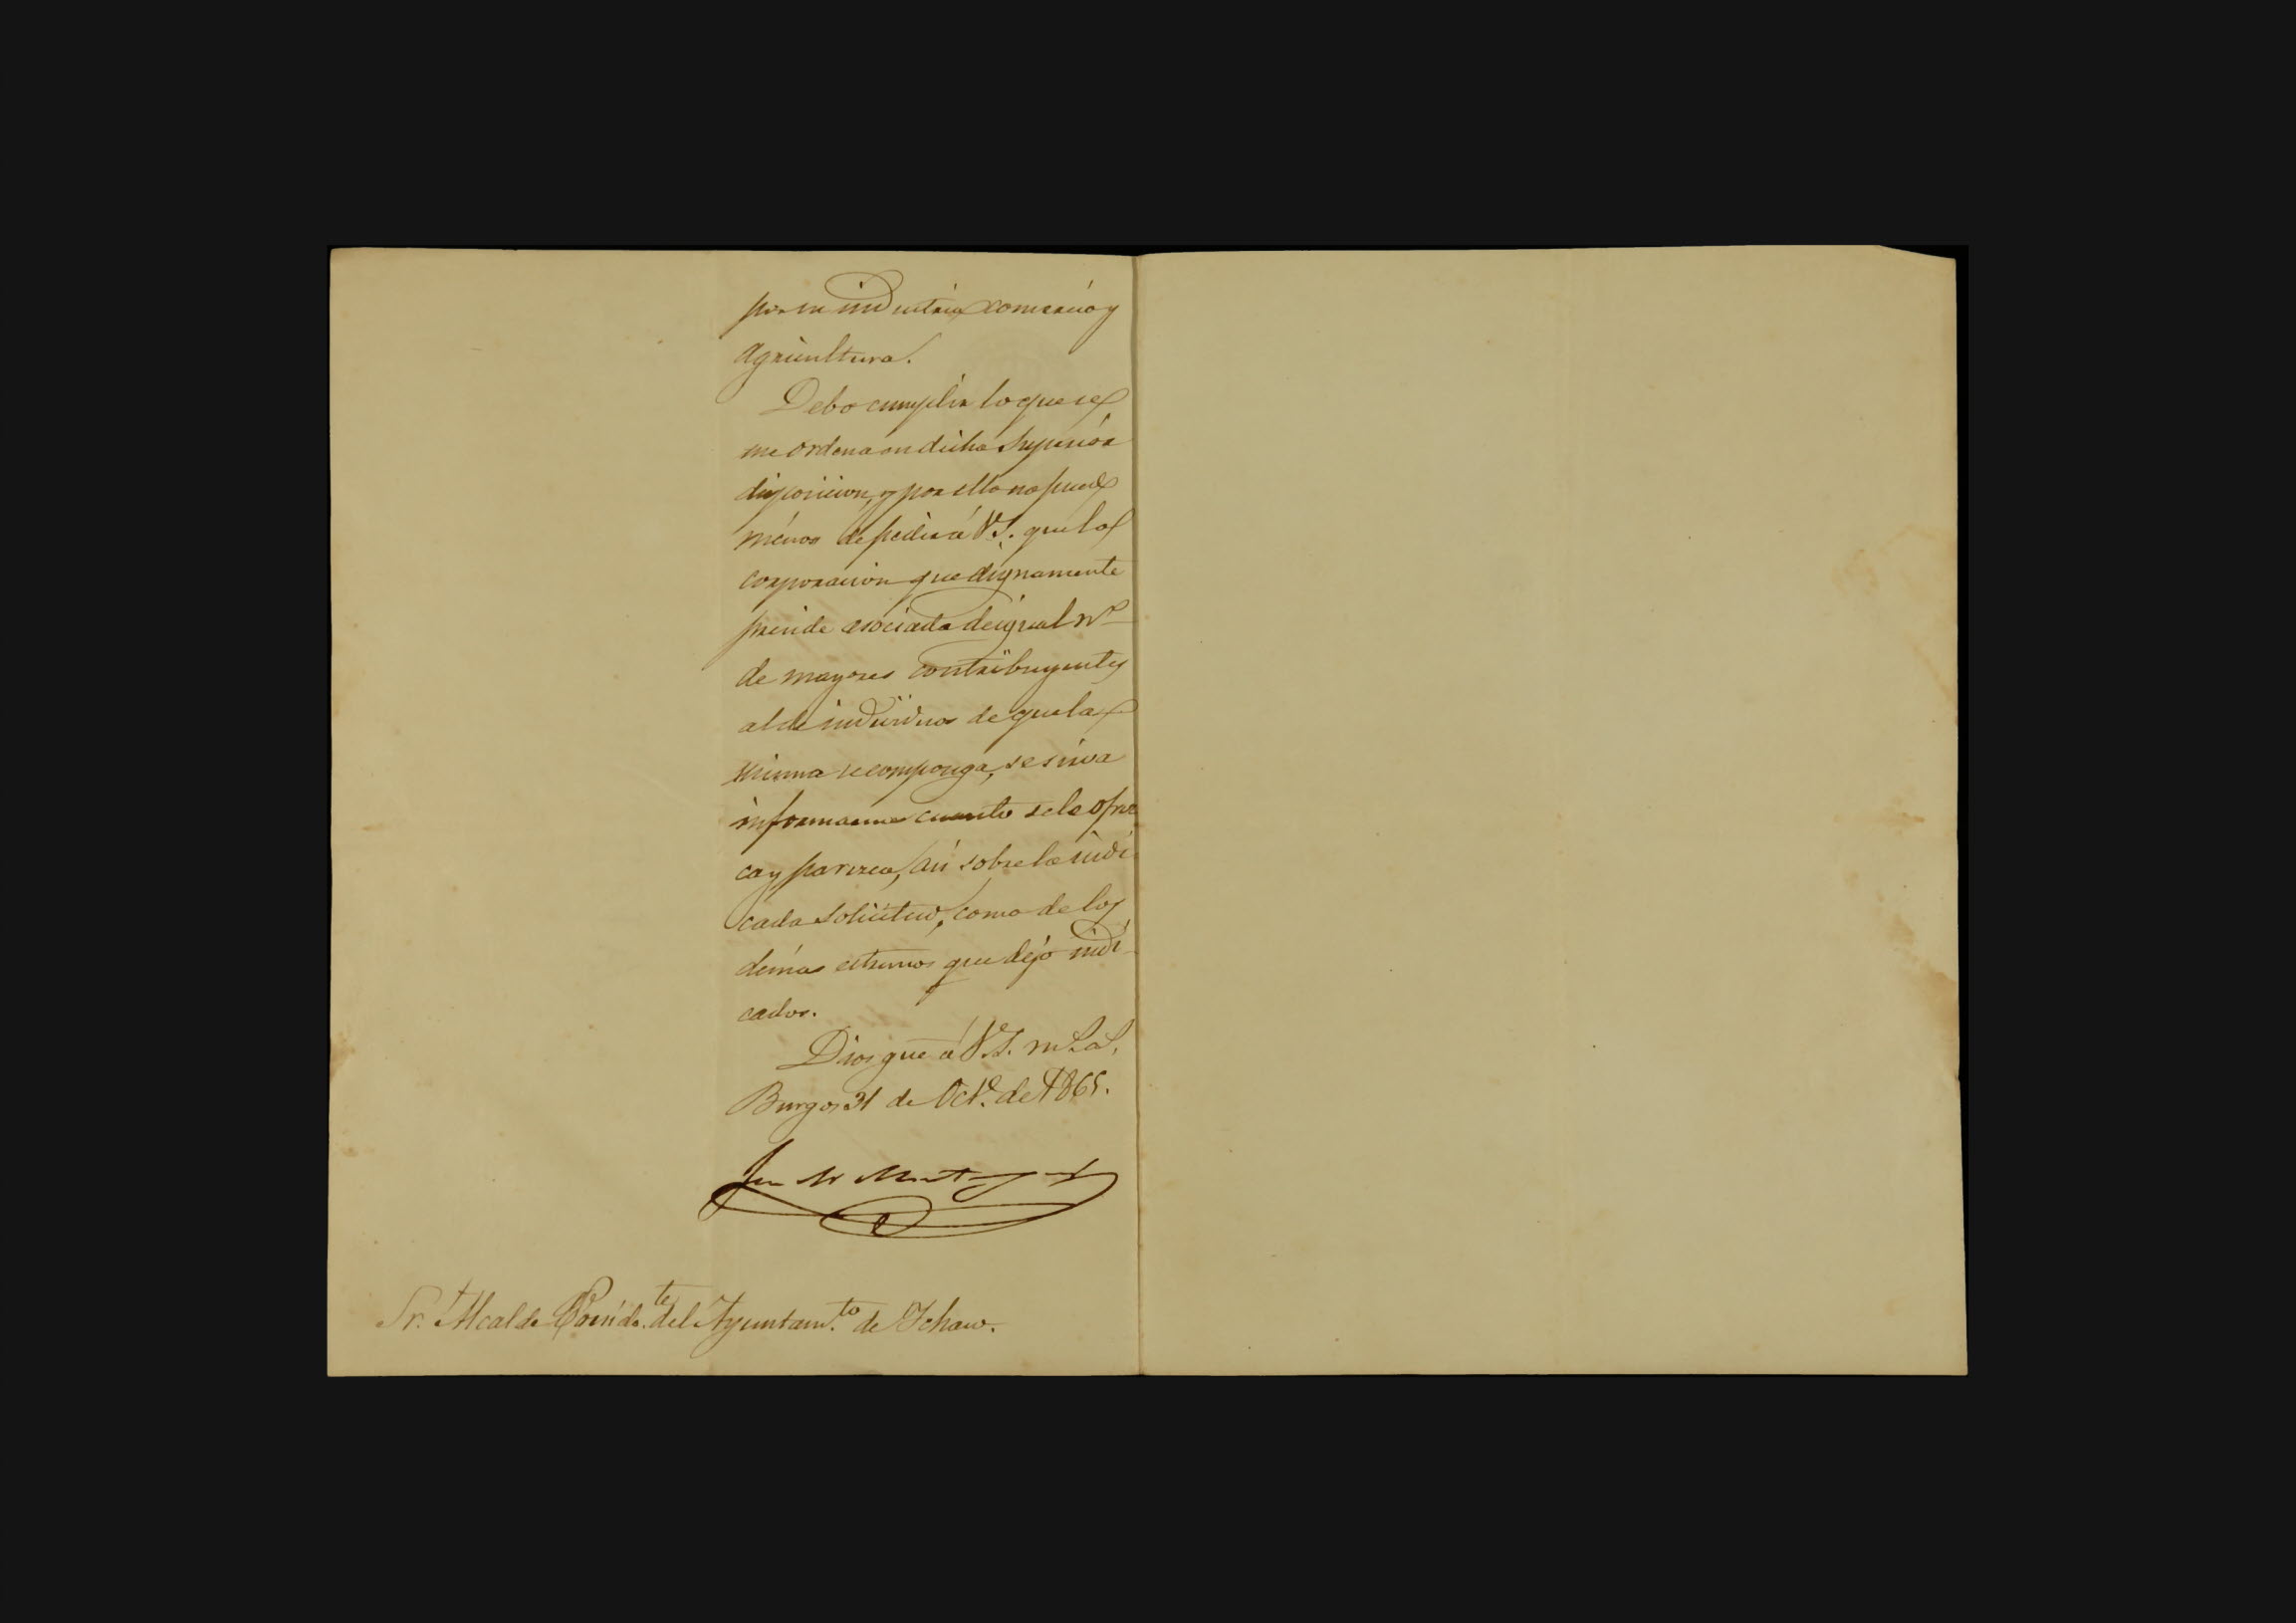 por su industria, comercio y
agricultura.
Debo cumplir lo que se
me ordena en dicha Superior
disposicion, y por ello no puedo
ménos de pedir á V.S. que la
corporacion que dignamente
preside asociada de igual nº
de mayores contribuyentes
al de individuos de que la
misma se componga, se sirva
informarme cuanto se le ofrez
ca y parezca, así sobre la indi
cada solicitud, como de los
démas estremos que dejo indi-
cados.
Dios gue á V.S. m.s a.s
Burgos 31 de Oct.e de 1865.
Sr. Alcalde Presid.te del Ayuntam.to de